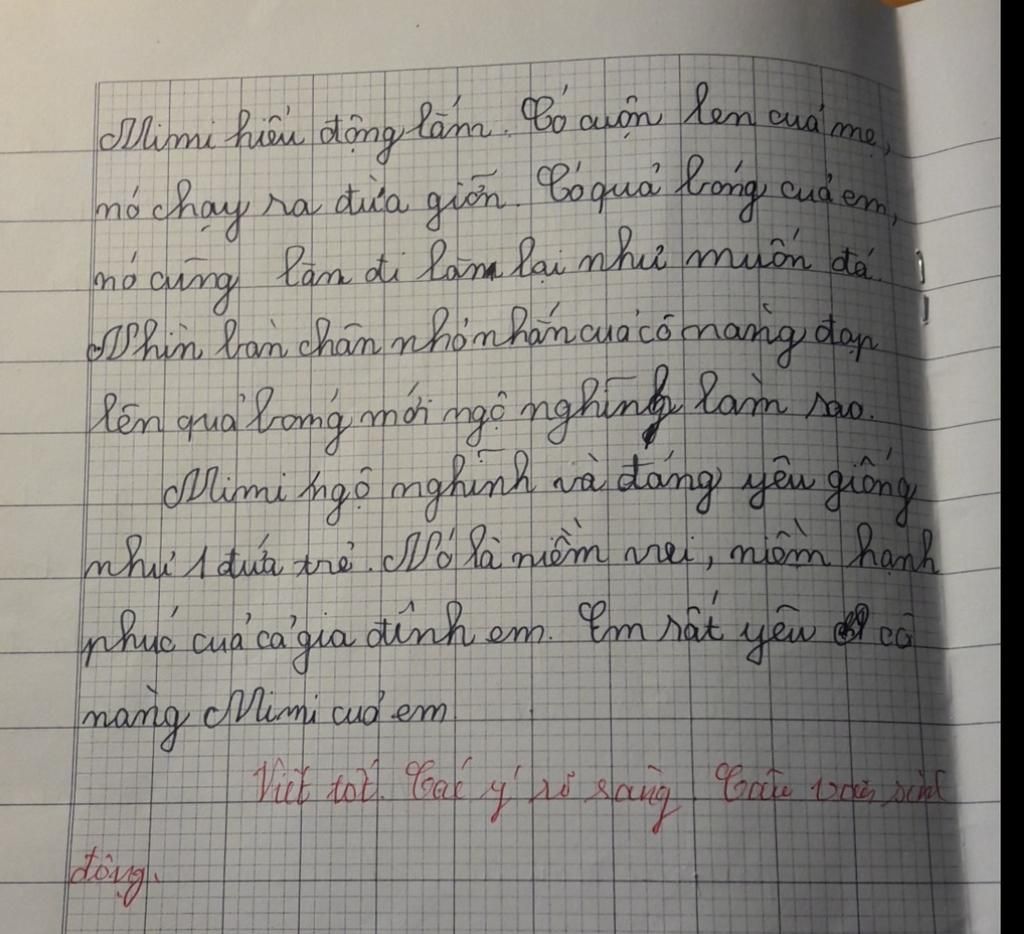 Mimi hiếu động lắm. Có cuộn len của mẹ,
nó chạy ra đùa giỡn. Có quả bóng của em,
nó cũng lăn đi lăn lại như muốn đá.
Nhìn bàn chân nhỏ nhắn của cô nàng đạp
lên quả bóng mới ngộ nghĩnh làm sao.
Mimi ngộ nghĩnh và đáng yêu giống
như 1 đứa trẻ. Nó là niềm vui, niềm hạnh
phúc của cả gia đình em. Em rất yêu cô
nàng Mimi của em
Viết tốt. Các ý rõ ràng. Câu văn sinh
động.